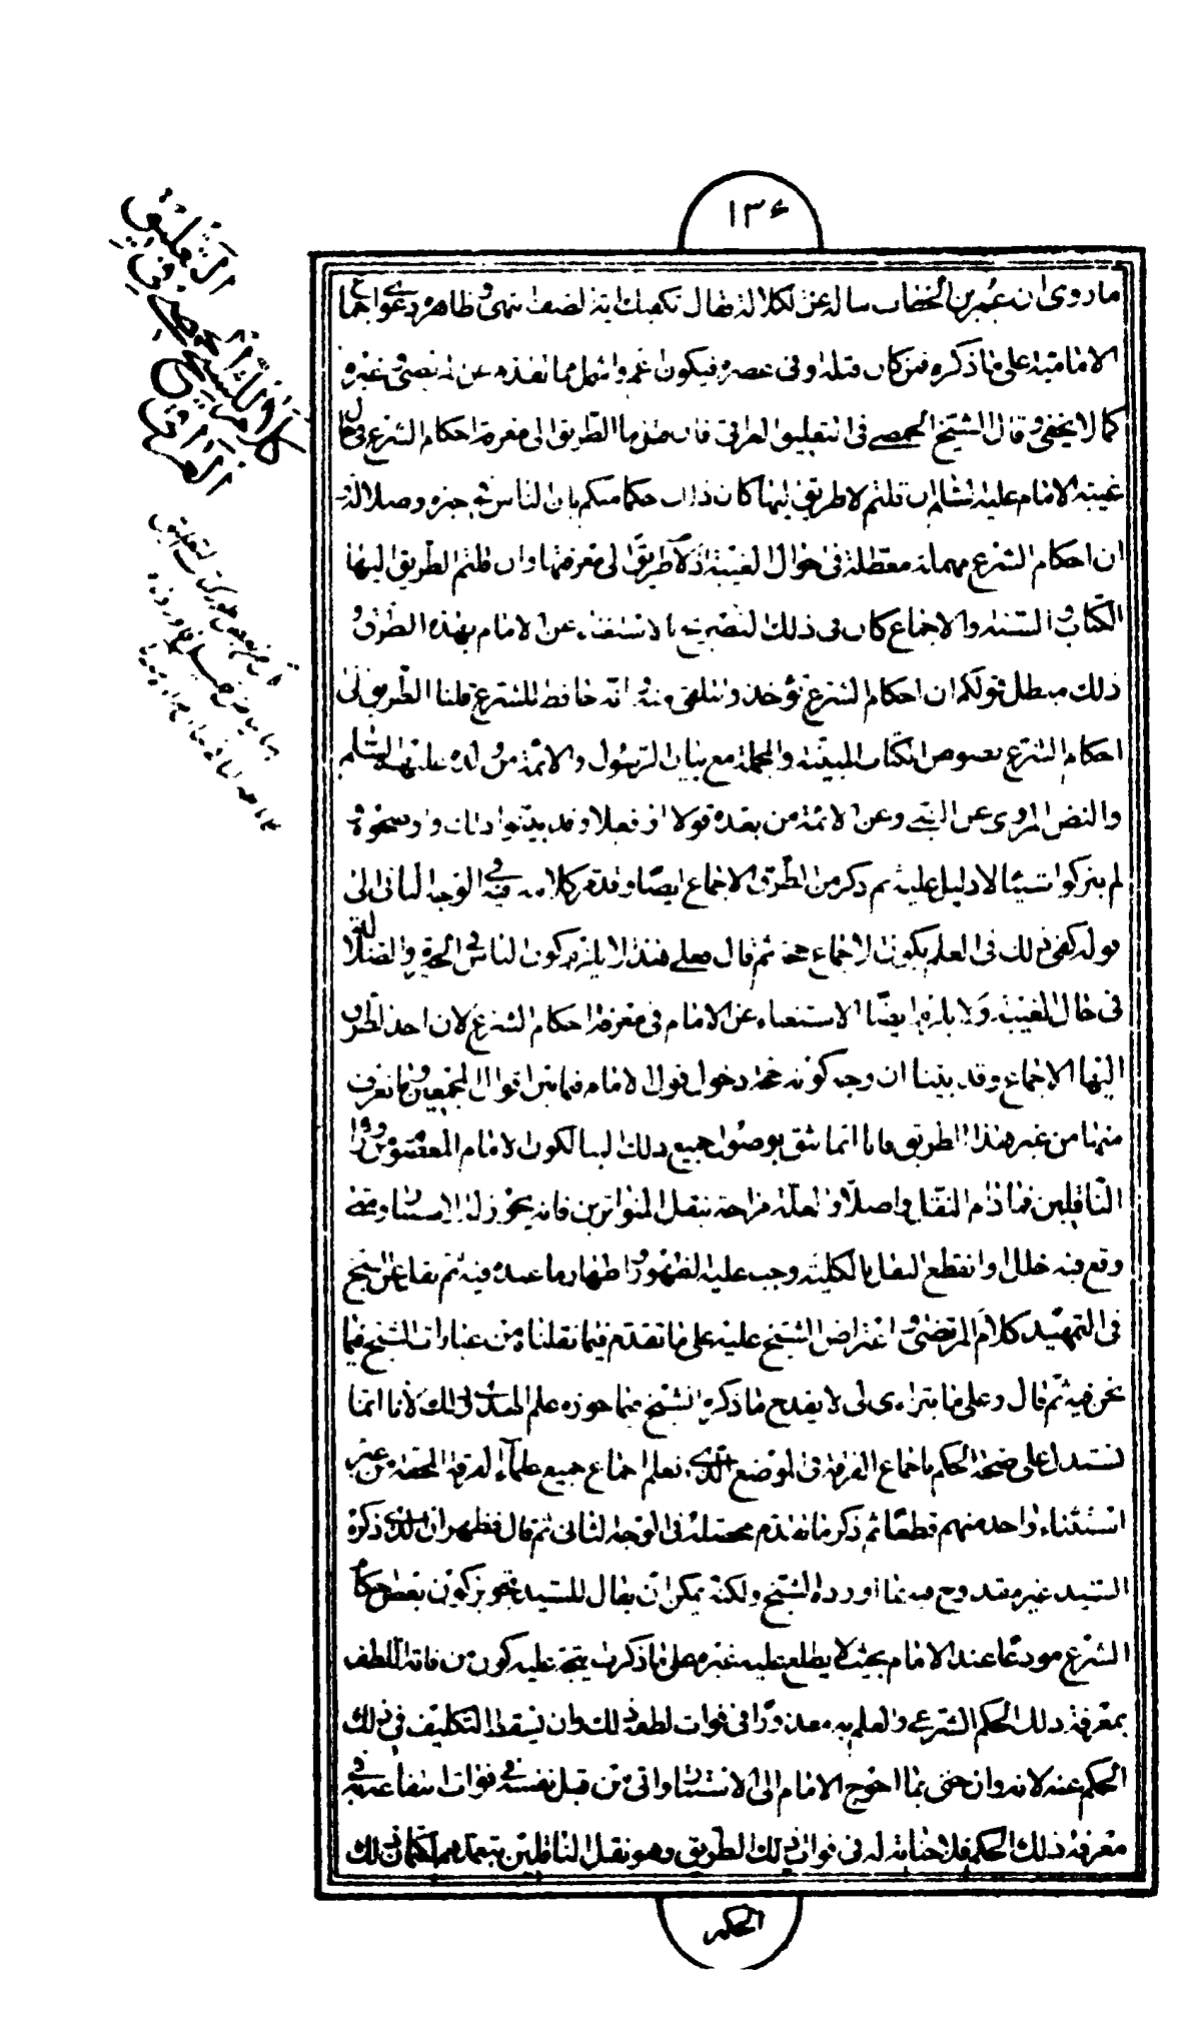 ١٣۶
ما روى ان عمر بن الخطاب سأله عن الكلالة فقال تكفيك اية الصيف انتهى و ظاهره دعوى اجماع
الامامية على ما ذكره فمن كان قبله او فى عصره فيكون اعم و اشمل مما نقله عن المرتضى و غيره
كما لا يخفى و قال الشيخ الحمصى فى التعليق العراقى فان قيل ما الطريق الى معرفة احكام الشرع فى حال
غيبة الامام عليه السلام ان قلتم لا طريق اليها كان ذلك حكما منكم بان الناس فى حيرة و ضلالة و
ان احكام الشرع مهملة معطلة فى احوال الغيبة اذ لا طريق الى معرفتها و ان قلتم الطريق اليها
الكتاب و السنة و الاجماع كان فى ذلك التصريح بالاستغناء عن الامام بهذه الطرق و
ذلك مبطل قولكم ان احكام الشرع تؤخذ و تتلقى منه و انه حافظ للشرع قلنا الطريق الى
احكام الشرع نصوص الكتاب المبينة و المجملة مع بيان الرسول و الائمة من ولده عليهم السلم
والنص المروى عن النبى و عن الائمة من بعده قولا او فعلا و قد بينوا ذلك و اوضحوه
لم يتركوا شيئا لا دليل عليه ثم ذكر من الطرق الاجماع ايضا و قد مر كلامه فيه فى الوجه الثانى الى
قوله كفى ذلك فى العلم بكون الاجماع حجة ثم قال فعلى هذا لا يلزم كون الناس فى الحيرة و الضلالة
فى حال الغيبة و لا يلزم ايضا الاستغناء عن الامام فى معرفة احكام الشرع لان احد الطرق
اليها الاجماع و قد بينا ان وجه كونه حجة دخول قول الامام فيما بين اقوال المجمعين و ما نعرف
منها من غير هذا الطريق فانا انما نثق بوصول جميع ذلك الينا لكون الامام المعصوم من وراء
الناقلين فما دام النقل واصلا و العلة مزاحة بنقل المتواترين فانه يجوز له الاستتار و متى
وقع فيه خلل او انقطع النقل بالكلية وجب عليه الظهور و اظهار ما عنده فيه ثم نقل عن الشيخ
فى التمهيد كلام المرتضى و اعتراض الشيخ عليه على ما تقدم فيما نقلناه من عبارات الشيخ فيما
نحن فيه ثم قال و على ما يتراءى لى لا يقدح ما ذكره الشيخ فيما جوزه علم الهدى لا ذلك لانا انما
نستدل على صحة الحكم باجماع الفرقة فى الموضع الذى نعلم اجماع جميع علماء الفرقة المحقة من غير
استثناء واحد منهم قطعا ثم ذكر ما تقدم محصله فى الوجه الثانى ثم قال فظهر ان الذى ذكره
السيد غير مقدوح فيه بما اورده الشيخ و لكنه يمكن ان يقال للسيد تجويز كون بعض احكام
الشرع مودعا عند الامام بحيث لا يطلع عليه غيره على ما ذكرت يتجه عليه كون من فاته اللطف
بمعرفة ذلك الحكم الشرعى و العلم به معذورا فى فوات لطفه ذلك و ان يسقط التكليف فى ذلك
الحكم عنه لانه و ان جنى بما احوج الامام الى الاستتار و اتى من قبل نفسه فى فوات انتفاعه به فى
معرفة ذلك الحكم فلا جناية له فى فوات ذلك الطريق و هو نقل الناقلين بتعمدهم لكتمان ذلك
الحكم
كلام الشيخ الحمصى فى
التعليق العراقى